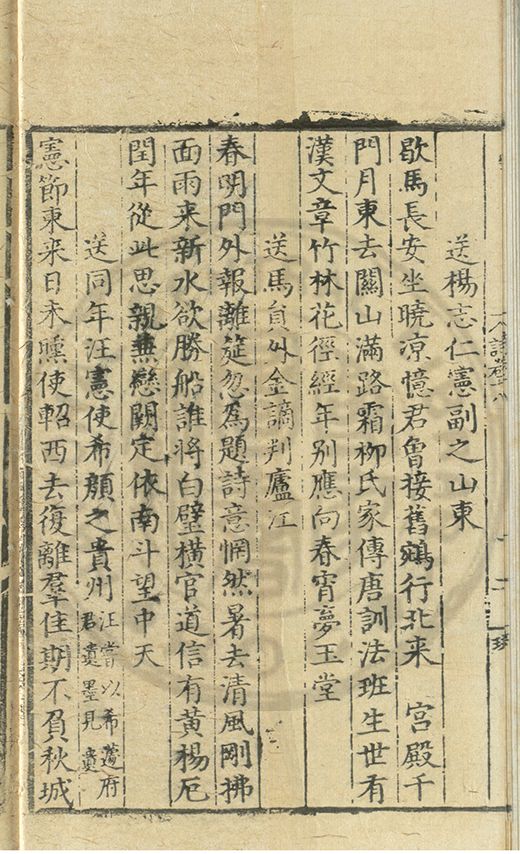 送楊志仁憲副之山東
歇馬長安坐曉凉憶君曾接舊鵷行北来　宮殿千
門月東去關山滿路霜柳氏家傳唐訓法班生世有
漢文章竹林花徑經年别應向春宵夢玉堂
送馬員外金謫判廬江
春明門外報離筵忽爲題詩意惘然暑去清風剛拂
面雨来新水欲勝船誰將白璧横官道信有黄楊厄
閏年從此思親無戀闕定依南斗望中天
送同年汪憲使希顔之貴州汪嘗以希蘧府
君遺墨見遺
憲節東来日未曛使軺西去復離羣佳期不負秋城